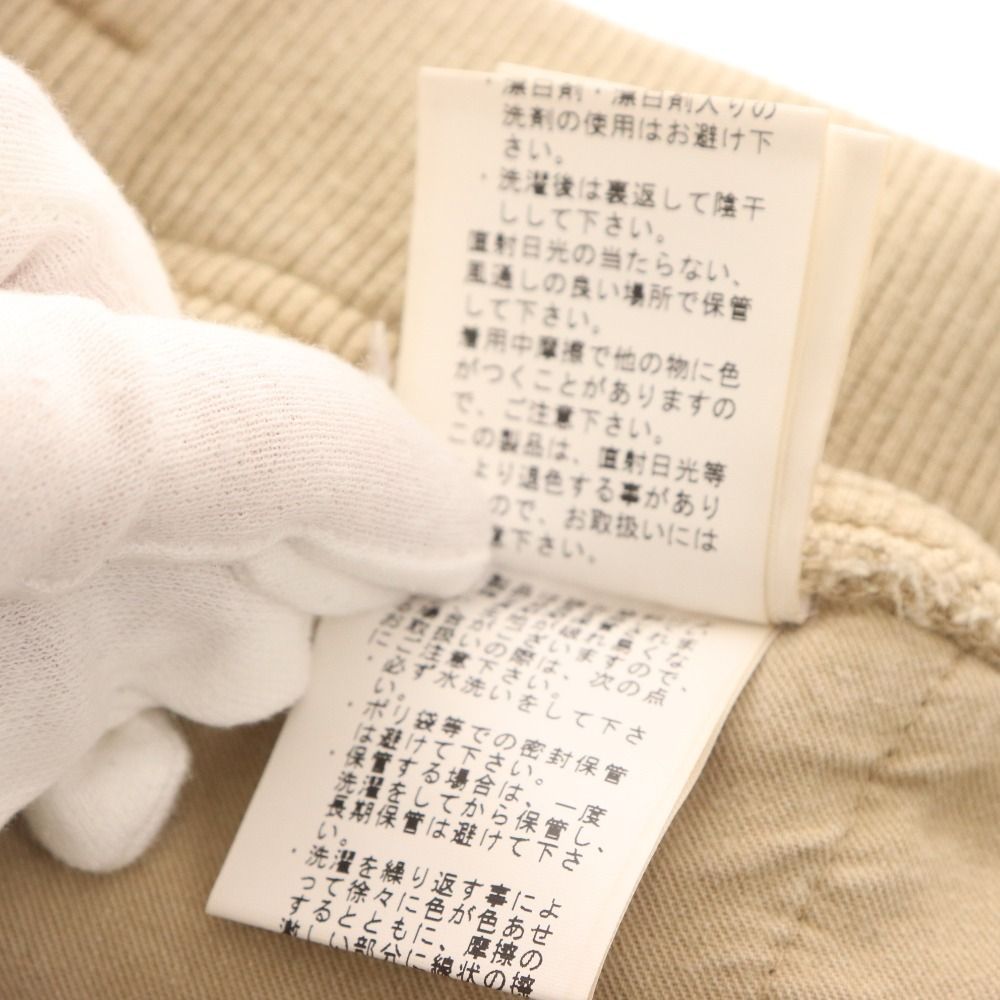 ・漂白剤・漂白剤入りの
洗剤の使用はお避け下
さい。
・洗濯後は裏返して陰干
しして下さい。
直射日光の当たらない、
風通しの良い場所で保管
して下さい。
着用中摩擦で他の物に色
がつくことがありますの
で、ご注意下さい。
この製品は、直射日光等
より退色する事があり
ので、お取扱いには
意下さい。
ますので、
お取扱いの際は、次の点
にご注意下さい。
・必ず水洗いをして下さ
い。
・ポリ袋等での密封保管
は避けて下さい。
・保管する場合は、一度
洗濯をしてから保管し、
長期保管は避けて下さ
い。
・洗濯を繰り返す事によ
って徐々に色が色あせ
するとともに、摩擦の
激しい部分に線状の擦